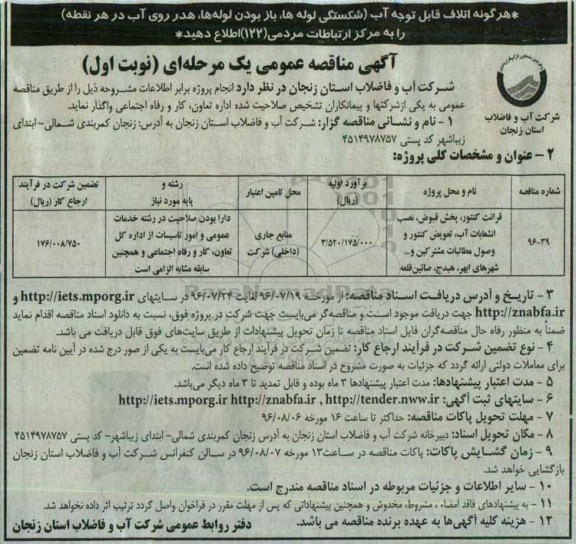 *هرگونه اتلاف قابل توجه آب (شکستگی لوله ها، باز بودن لوله‌ها، هدر روی آب در هر نقطه)
را به مرکز ارتباطات مردمی(۱۲۲)اطلاع دهید*
آگهی مناقصه عمومی یک مرحله‌ای (نوبت اول)
شرکت آب و فاضلاب
استان زنجان
شرکت آب و فاضلاب استان زنجان در نظر دارد انجام پروژه برابر اطلاعات مشروحه ذیل را از طریق مناقصه
عمومی به یکی ازشرکتها و پیمانکاران تشخیص صلاحیت شده اداره تعاون، کار و رفاه اجتماعی واگذار نماید.
۱ - نام و نشانی مناقصه گزار: شرکت آب و فاضلاب استان زنجان به آدرس: زنجان کمربندی شمالی- ابتدای
زیباشهر کد پستی ۴۵۱۴۹۷۸۷۵۷
۲ - عنوان و مشخصات کلی پروژه:
شماره مناقصه
نام و محل پروژه
برآورد اولیه
(ریال)
محل تامین اعتبار
رشته و
پایه مورد نیاز
تضمین شرکت در فرآیند
ارجاع کار (ریال)
۹۶-۳۹
قرائت کنتور، پخش قبوض، نصب
انشعابات آب، تعویض کنتور و
وصول مطالبات مشترکین و...
شهرهای ابهر، هیدج، صائین‌قلعه
۳/۵۲۰/۱۷۵/۰۰۰
منابع جاری
(داخلی) شرکت
دارا بودن صلاحیت در رشته خدمات
عمومی و امور تاسیسات از اداره کل
تعاون، کار و رفاه اجتماعی و همچنین
سابقه مشابه الزامی است
۱۷۶/۰۰۸/۷۵۰
۳ - تاریخ و آدرس دریافت اسناد مناقصه: از مورخه ۹۶/۰۷/۱۹ لغایت ۹۶/۰۷/۲۴ در سایتهای http://iets.mporg.ir و
http://znabfa.ir جهت دریافت موجود است و مناقصه‌گر می‌بایست جهت شرکت در پروژه فوق، نسبت به دانلود اسناد مناقصه اقدام نماید
ضمناً به منظور رفاه حال مناقصه‌گران فایل اسناد مناقصه تا زمان تحویل پیشنهادات از طریق سایت‌های فوق قابل دریافت می باشد.
۴ - نوع تضمین شرکت در فرآیند ارجاع کار: تضمین شرکت در فرآیند ارجاع کار می‌بایست به یکی از صور درج شده در آیین نامه تضمین
برای معاملات دولتی ارائه گردد که جزئیات به صورت مشروح در اسناد مناقصه توضیح داده شده است.
۵ - مدت اعتبار پیشنهادها: مدت اعتبار پیشنهادها ۳ ماه بوده و قابل تمدید تا ۳ ماه دیگر می‌باشد.
۶ - سایتهای ثبت آگهی: http://iets.mporg.ir http://znabfa.ir , http://tender.nww.ir
۷ - مهلت تحویل پاکات مناقصه: حداکثر تا ساعت ۱۶ مورخه ۹۶/۰۸/۰۶
۸ - مکان تحویل اسناد: دبیرخانه شرکت آب و فاضلاب استان زنجان به آدرس زنجان کمربندی شمالی- ابتدای زیباشهر- کد پستی ۴۵۱۴۹۷۸۷۵۷
۹ - زمان گشایش پاکات: پاکات مناقصه در ساعت۱۳ مورخه ۹۶/۰۸/۰۷ در سالن کنفرانس شرکت آب و فاضلاب استان زنجان
بازگشایی خواهد شد.
۱۰ - سایر اطلاعات و جزئیات مربوطه در اسناد مناقصه مندرج است.
۱۱ - به پیشنهادهای فاقد امضاء ، مشروط، مخدوش و همچنین پیشنهاداتی که پس از مهلت مقرر در فراخوان واصل گردد ترتیب اثر داده نخواهد شد.
۱۲ - هزینه کلیه آگهی‌ها به عهده برنده مناقصه می باشد.
دفتر روابط عمومی شرکت آب و فاضلاب استان زنجان